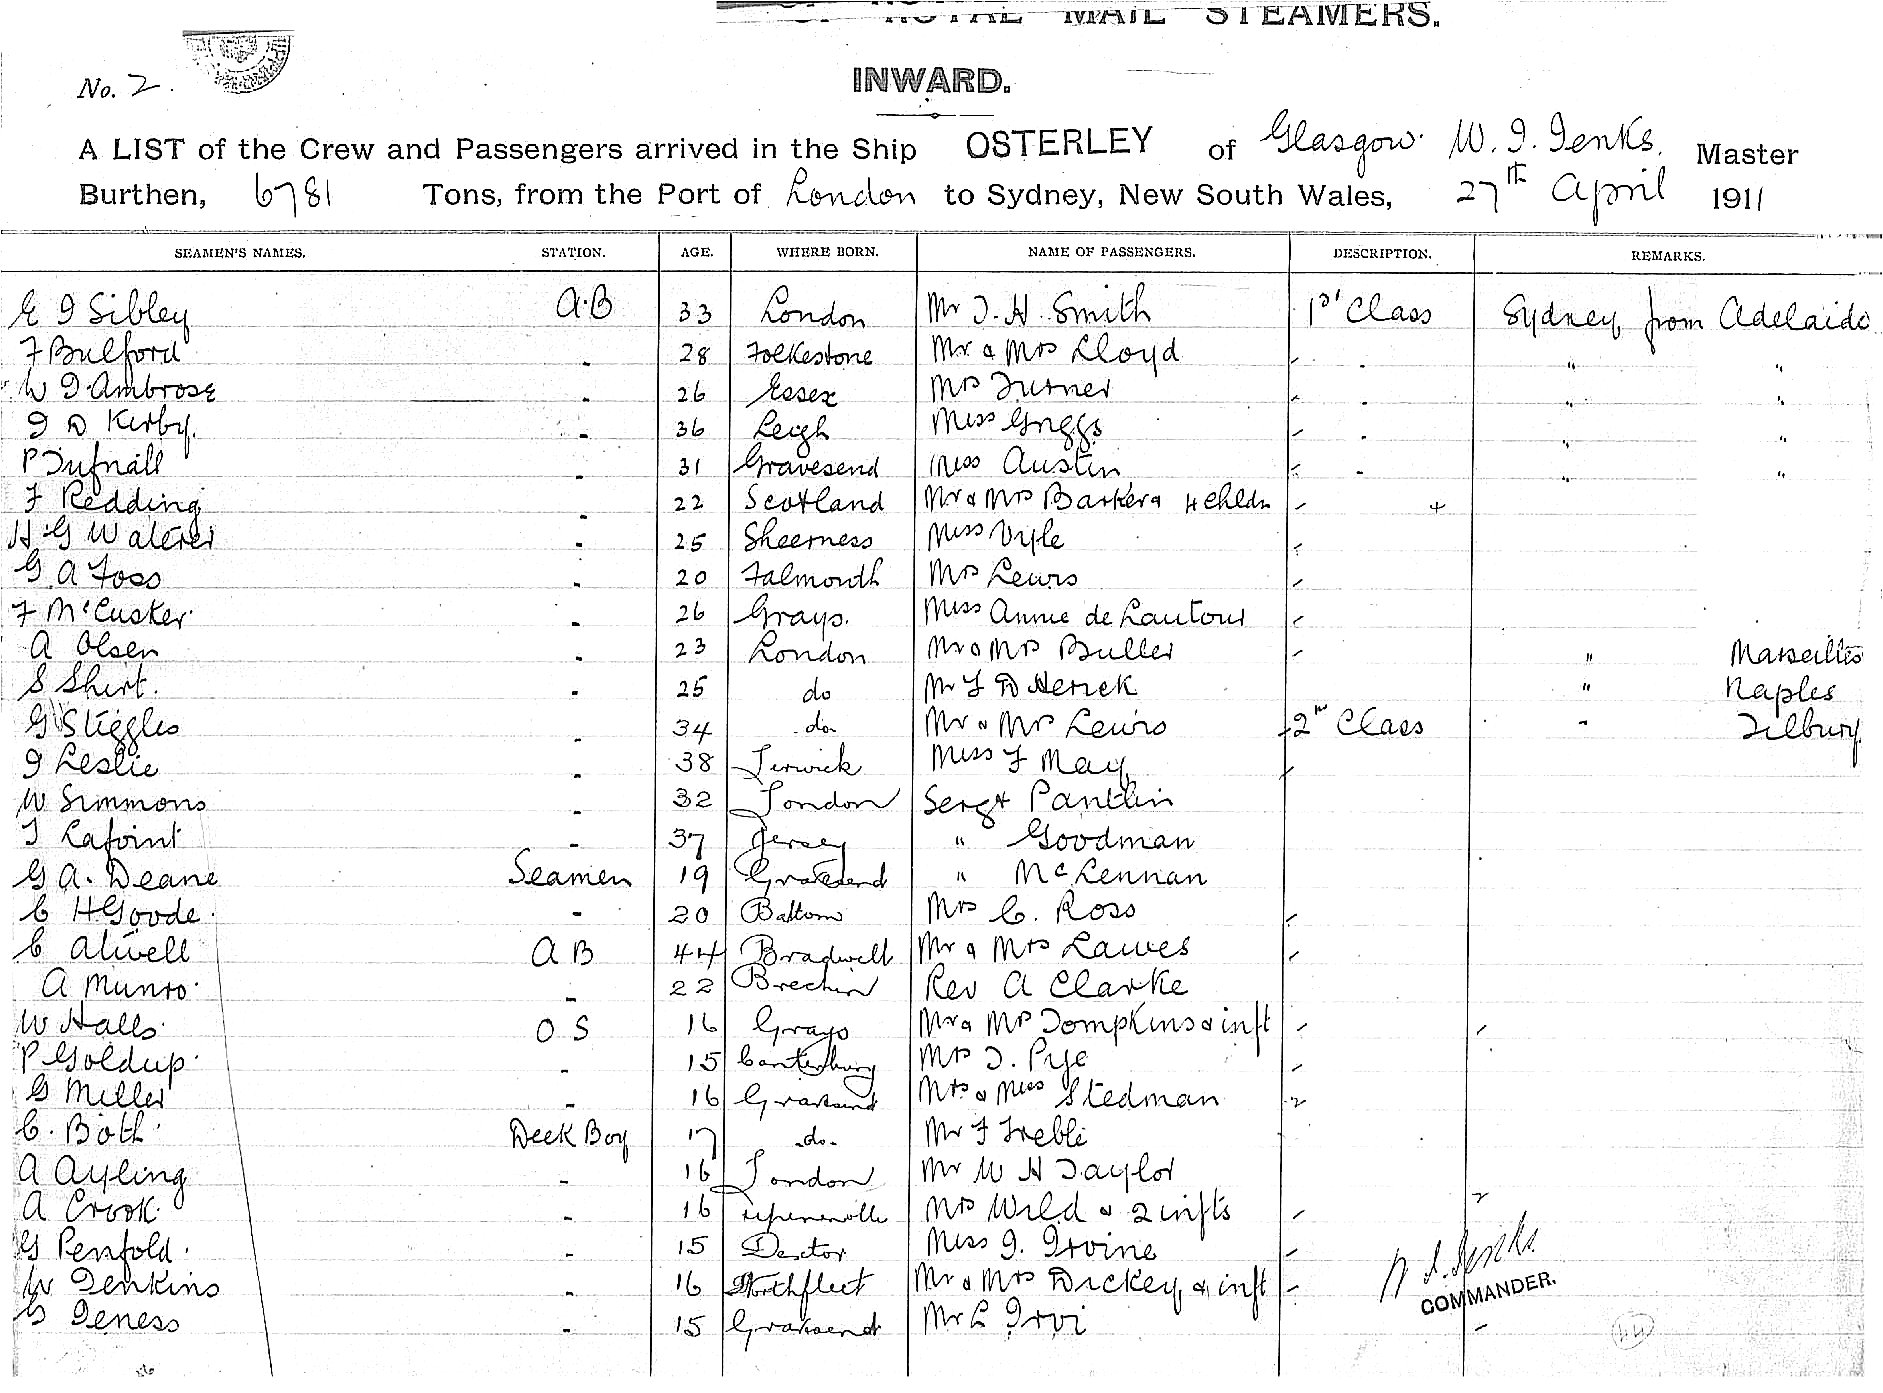 OF ROYAL MAIL STEAMERS.
No. 2.
INWARD.
A LIST of the Crew and Passengers arrived in the Ship OSTERLEY of Glasgow. W. J. Jenks. Master
Burthen, 6781 Tons, from the Port of London to Sydney, New South Wales, 27th April 1911
SEAMEN'S NAMES. STATION. AGE. WHERE BORN. NAME OF PASSENGERS. DESCRIPTION. REMARKS.
E J Sibley A.B 33 London Mr T. H. Smith 1st Class Sydney from Adelaide
F Bulford - 28 Folkestone Mr & Mrs Lloyd - - " "
W J Ambrose - 26 Essex Mrs Turner - - " "
J D Kirby. - 36 Leigh Miss Griggs - - " "
P Tufnall - 31 Gravesend Miss Austin - - " "
F Redding - 22 Scotland Mr & Mrs Barker & 4 Chldn -
H G Waterer - 25 Sheerness Miss Vyle -
G A Foss - 20 Falmouth Mrs Lewis -
F McCusker - 26 Grays. Miss Annie de Lautour -
A Olsen - 23 London Mr & Mrs Buller - " Marseilles
S Shirt. - 25 do Mr F D Herick " Naples
G Stiggles - 34 do Mr & Mrs Lewis 2nd Class " Tilbury
J Leslie - 38 Lerwick Miss F May -
W Simmons - 32 London Sergt Pantlin
J Lafoint - 37 Jersey " Goodman
G A. Deane Seamen 19 Gravesend " McLennan
C H Goode. - 20 Mrs C. Ross -
C Atwell A B 44 Bradwell Mr & Mrs Lawes -
A Munro. - 22 Brechin Rev A Clarke
W Halls O S 16 Grays Mr & Mrs Tompkins & inft -
P Goldup. - 15 Canterbury Mrs J. Pye -
G Miller - 16 Gravesend Mrs & Miss Stedman -
C. Both. Deck Boy 17 do. Mr F Treble
A Ayling - 16 London Mr W H Taylor
A Crook. - 16 Mrs Wild & 2 infts -
G Penfold. - 15 Miss J. Irvine -
W Jenkins - 16 Northfleet Mr & Mrs Dickey & inft -
G Jeness - 15 Gravesend Mr L
W. J. Jenks
COMMANDER.
44